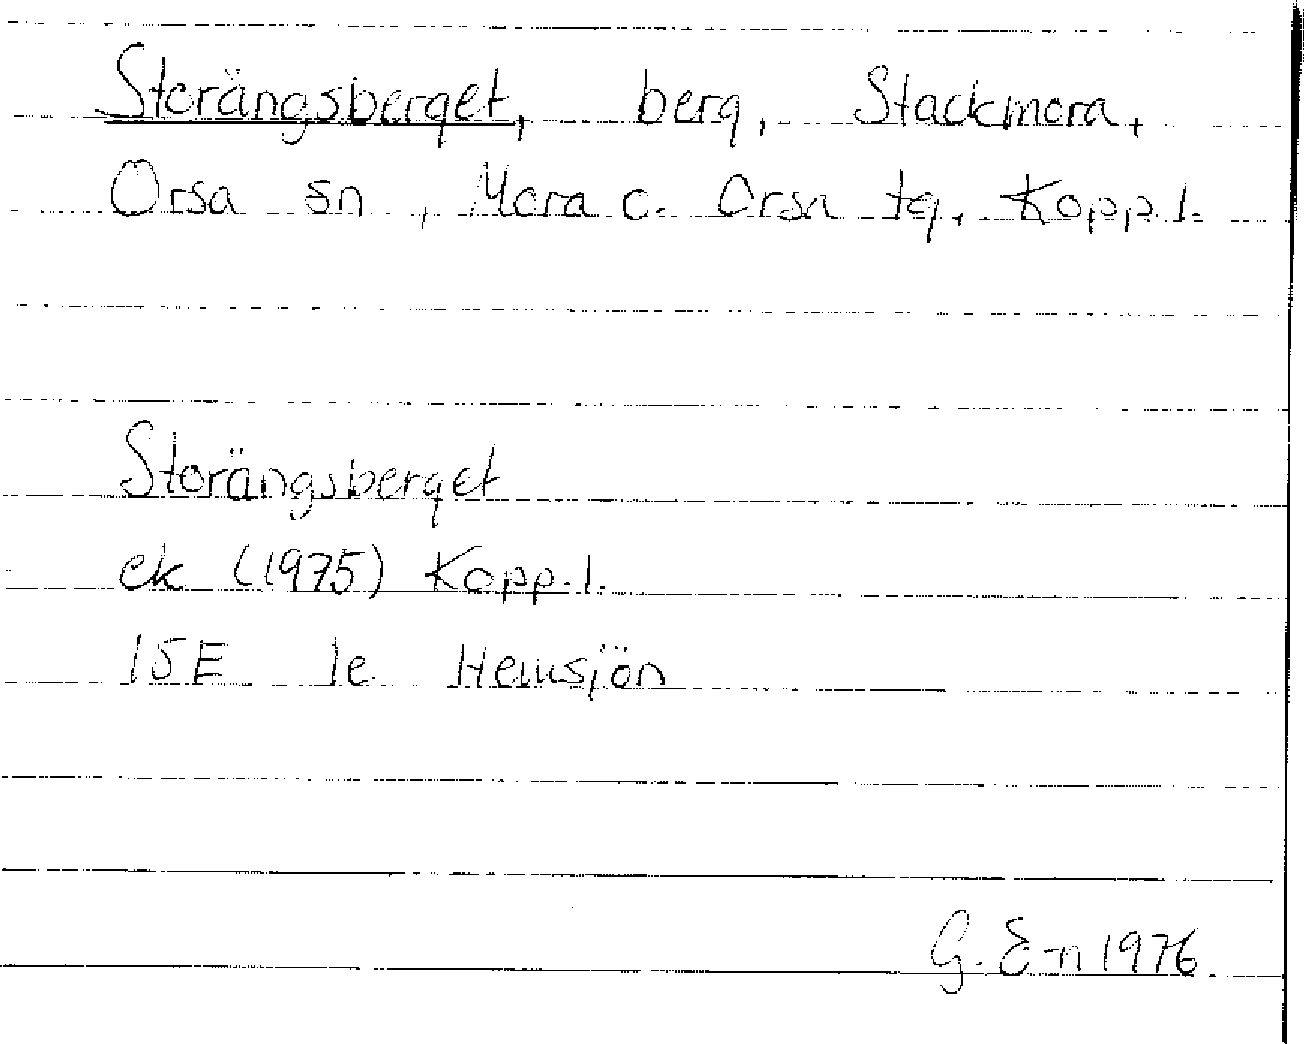 Storängsberget, berg, Stackmora,
Orsa sn, Mora o. Orsa tg, Kopp. l.
Storängsberget
ek (1975) Kopp. l.
15E 1e Hemsjön
G. E-n 1976.